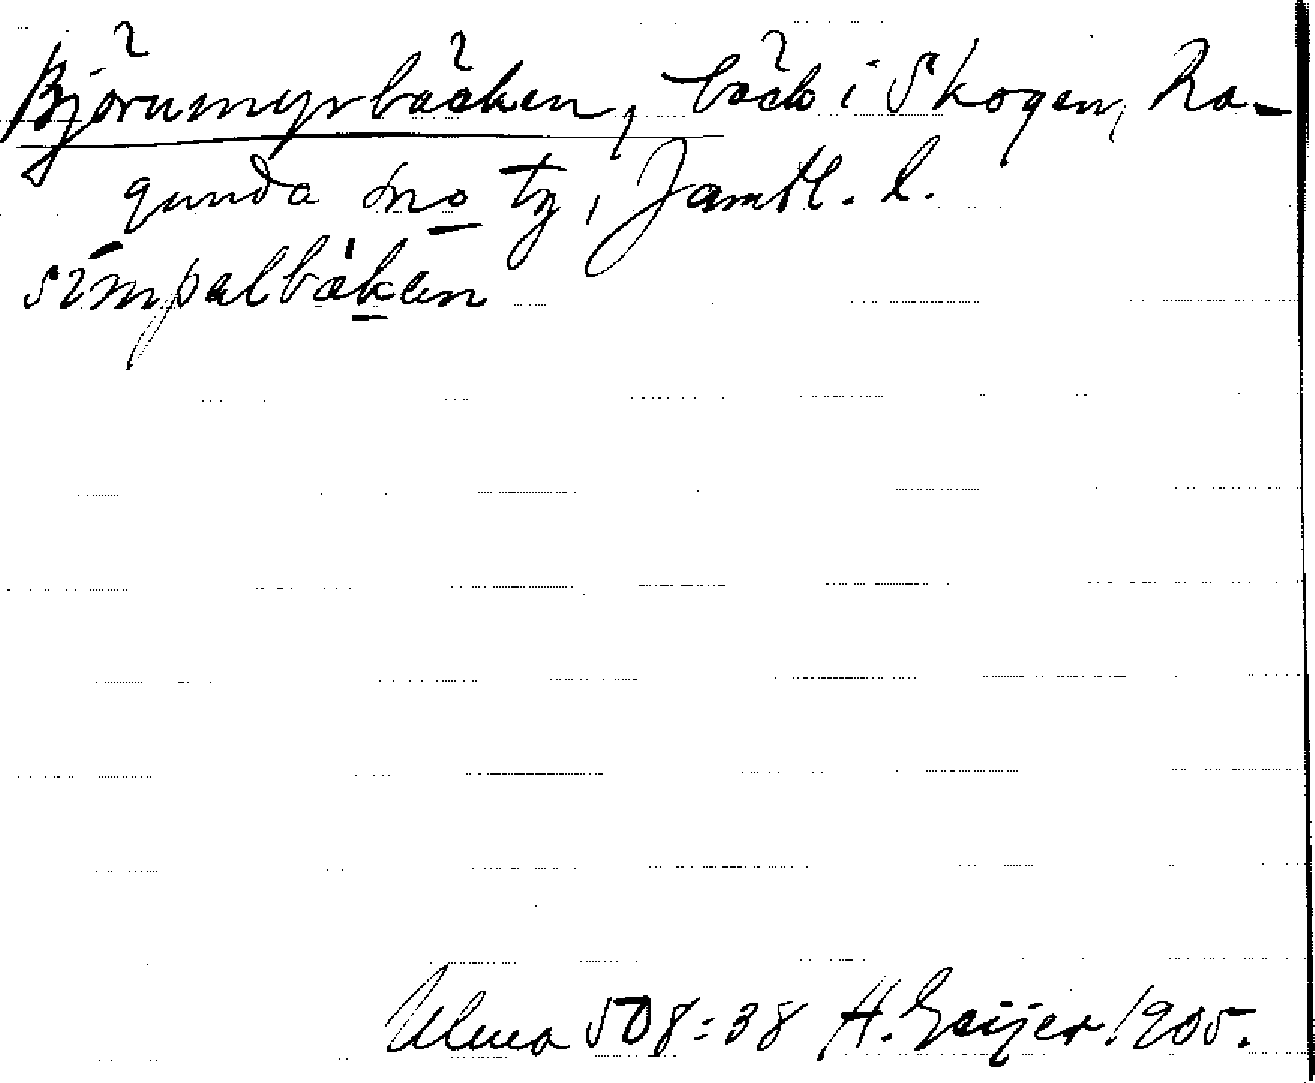 Björnmyrbäcken, bäck i Skogen, Ra-
gunda sno tg, Jämtl. l.
simpalbäken
Ulma 508:38 H. Geijer 1905.